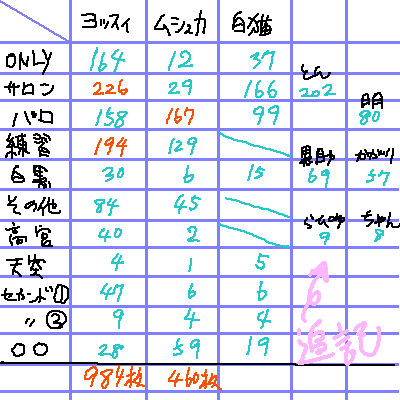 ヨッスィ ムシュカ 白猫
ONLY 164 12 37 とん
サロン 226 29 166 202 明
パロ 158 167 99 80
練習 194 129
白黒 30 6 15 69 57
その他 84 45
高宮 40 2 9 ちゃん 8
天空 4 1 5
セカンド① 47 6 6
〃② 9 4 4
○○ 28 59 19
984枚 460枚
追記